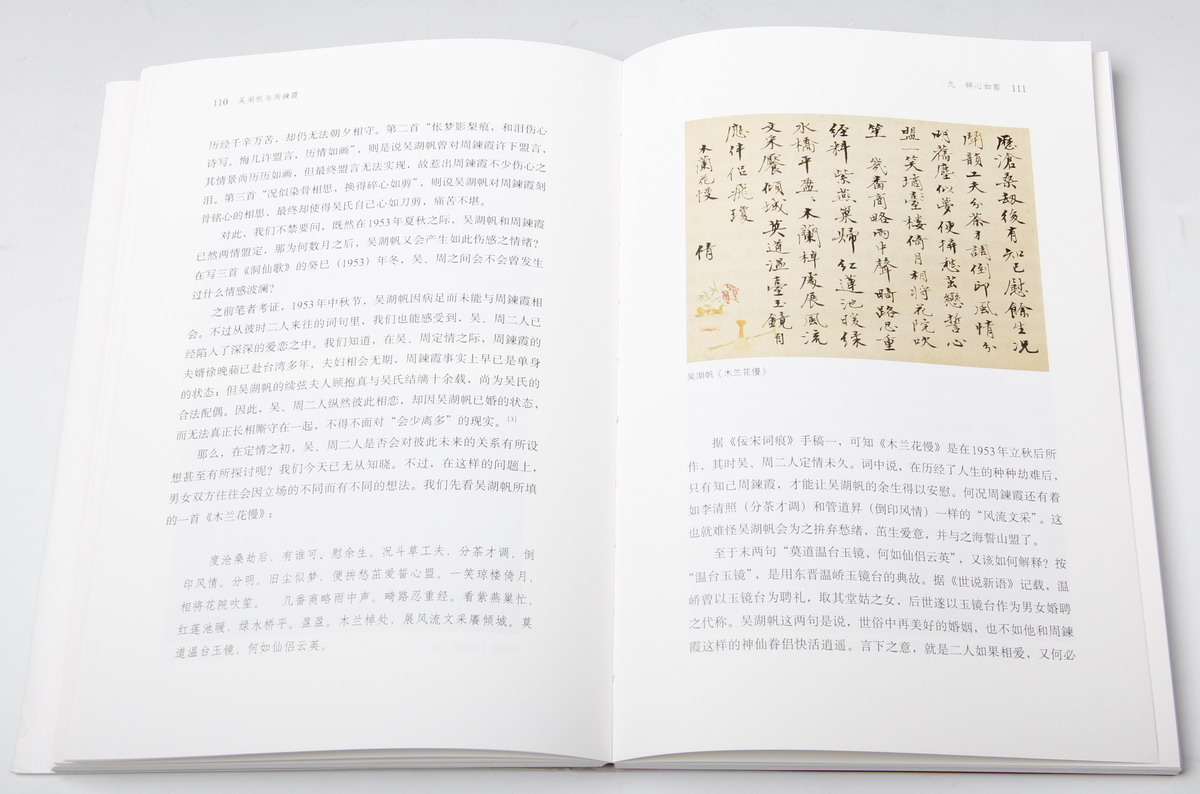 110 吴湖帆与周鍊霞
历经千辛万苦，却仍无法朝夕相守。第二首“怅梦影梨痕，和泪伤心
诗写。悔几许盟言，历情如画”，则是说吴湖帆曾对周鍊霞许下盟言，
其情景尚历历如画，但最终盟言无法实现，故惹出周鍊霞不少伤心之
泪。第三首“况似染骨相思，换得碎心如剪”，则说吴湖帆对周鍊霞刻
骨铭心的相思，最终却使得吴氏自己心如刀剪，痛苦不堪。
对此，我们不禁要问，既然在1953年夏秋之际，吴湖帆和周鍊霞
已然两情盟定，那为何数月之后，吴湖帆又会产生如此伤感之情绪？
在写三首《洞仙歌》的癸巳（1953）年冬，吴、周之间会不会曾发生
过什么情感波澜？
之前笔者考证，1953年中秋节，吴湖帆因病足而未能与周鍊霞相
会。不过从彼时二人来往的词句里，我们也能感受到，吴、周二人已
经陷入了深深的爱恋之中。我们知道，在吴、周定情之际，周鍊霞的
夫婿徐晚蘋已赴台湾多年，夫妇相会无期，周鍊霞事实上早已是单身
的状态；但吴湖帆的续弦夫人顾抱真与吴氏结缡十余载，尚为吴氏的
合法配偶。因此，吴、周二人纵然彼此相恋，却因吴湖帆已婚的状态，
而无法真正长相厮守在一起，不得不面对“会少离多”的现实。[3]
那么，在定情之初，吴、周二人是否会对彼此未来的关系有所设
想甚至有所探讨呢？我们今天已无从知晓。不过，在这样的问题上，
男女双方往往会因立场的不同而有不同的想法。我们先看吴湖帆所填
的一首《木兰花慢》：
度沧桑劫后，有谁可、慰余生。况斗草工夫，分茶才调，倒
印风情。分明。旧尘似梦，便拚愁茁爱誓心盟。一笑琼楼倚月，
相将花院吹笙。 几番商略雨中声。畸路忍重经。看紫燕巢忙，
红莲池暖，绿水桥平。盈盈。木兰棹处，展风流文采餍倾城。莫
道温台玉镜，何如仙侣云英。
九 碎心如剪 111
歷滄桑劫後有知己慰餘生况
鬭韻工夫分茶才調倒印風情分
明舊塵似夢便拚愁茁戀誓心
盟一笑瑶臺樓倚月相將花院吹
笙 幾番商略雨中聲 畸路忍重
經料紫燕巢歸紅蓮池暖緑
水橋平盈〻木蘭棹處展風流
文采饜傾城莫道温臺玉鏡自
應伴侣飛瓊
木蘭花慢 倩
吴湖帆《木兰花慢》
据《佞宋词痕》手稿一，可知《木兰花慢》是在1953年立秋后所
作，其时吴、周二人定情未久。词中说，在历经了人生的种种劫难后，
只有知己周鍊霞，才能让吴湖帆的余生得以安慰。何况周鍊霞还有着
如李清照（分茶才调）和管道昇（倒印风情）一样的“风流文采”。这
也就难怪吴湖帆会为之拚弃愁绪，茁生爱意，并与之海誓山盟了。
至于末两句“莫道温台玉镜，何如仙侣云英”，又该如何解释？按
“温台玉镜”，是用东晋温峤玉镜台的典故。据《世说新语》记载，温
峤曾以玉镜台为聘礼，取其堂姑之女，后世遂以玉镜台作为男女婚聘
之代称。吴湖帆这两句是说，世俗中再美好的婚姻，也不如他和周鍊
霞这样的神仙眷侣快活逍遥。言下之意，就是二人如果相爱，又何必